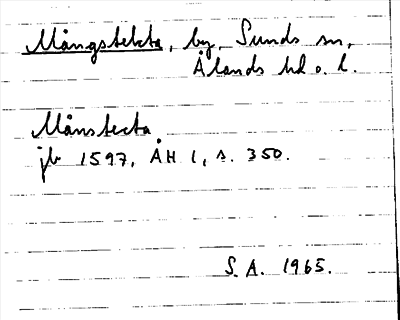 Mångstekta, by, Sunds sn,
Ålands hd o. l.
Månstecta
jb 1597, ÅH 1, s. 350.
S.A. 1965.